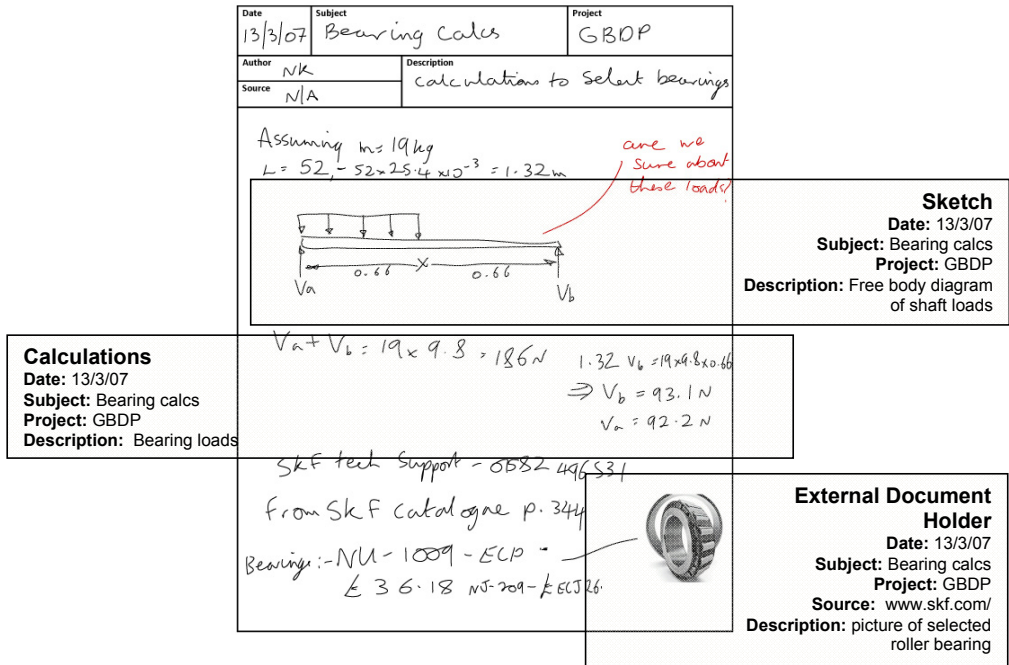 Date
13/3/07
Subject
Bearing Calcs
Project
GBDP
Author
NK
Source
N/A
Description
Calculations to Select bearings
Assuming m= 19kg
L= 52, - 52×25.4 ×10⁻³ = 1.32m
are we
sure about
these loads?
Sketch
Date: 13/3/07
Subject: Bearing calcs
Project: GBDP
Description: Free body diagram
of shaft loads
0.66 X 0.66
Va
Vb
Va + Vb = 19 × 9.8 = 186N
1.32 Vb = 19×9.8×0.66
⇒ Vb = 93.1N
Va = 92.2N
Calculations
Date: 13/3/07
Subject: Bearing calcs
Project: GBDP
Description: Bearing loads
SKF tech Support - 0582 496531
From SKF catalogue p. 344
Bearings:- NU - 1009 - ECP -
£36.18 NJ-209-
External Document
Holder
Date: 13/3/07
Subject: Bearing calcs
Project: GBDP
Source: www.skf.com/
Description: picture of selected
roller bearing